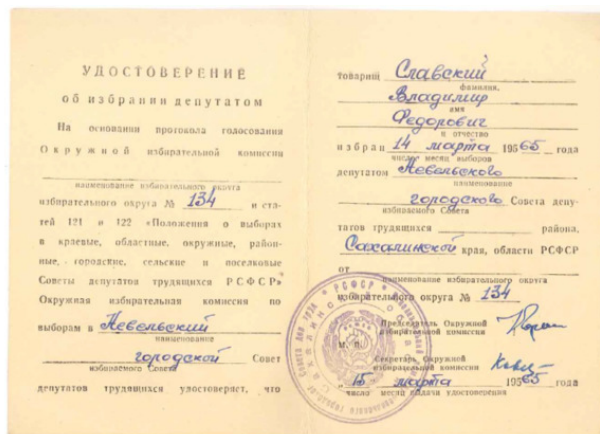 УДОСТОВЕРЕНИЕ
об избрании депутатом
На основании протокола голосования
Окружной избирательной комиссии
наименование избирательного округа
избирательного округа № 134 и ста-
тей 121 и 122 «Положения о выборах
в краевые, областные, окружные, район-
ные, городские, сельские и поселковые
Советы депутатов трудящихся РСФСР»
Окружная избирательная комиссия по
выборам в Невельский
наименование
городской Совет
избираемого Совета
депутатов трудящихся удостоверяет, что
товарищ Славский
фамилия,
Владимир
имя
Федорович
и отчество
избран 14 марта 195 65 года
число месяц выборов
депутатом Невельского
наименование
городского Совета депу-
избираемого Совета
татов трудящихся района,
Сахалинской края, области РСФСР
от
наименование избирательного округа
избирательного округа № 134
Председатель Окружной
избирательной комиссии
М. П.
Секретарь Окружной
избирательной комиссии
15 марта 195 65 года
число месяц выдачи удостоверения
РСФСР